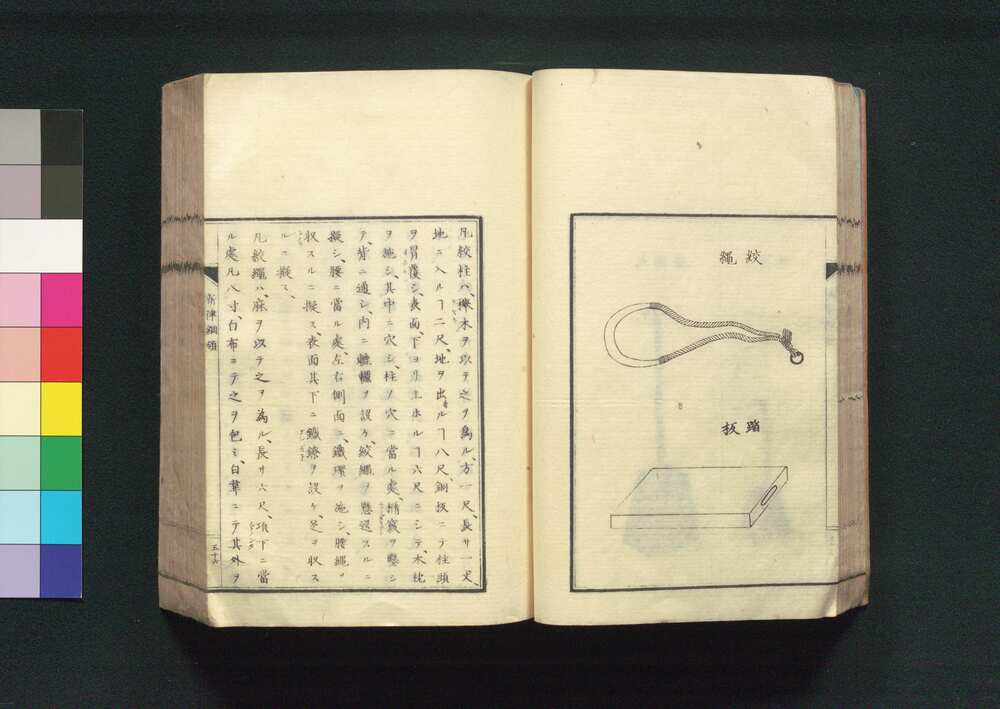 絞繩
踏板
凡絞柱ハ、欅木ヲ以テ之ヲ為ル、方一尺、長サ一丈、
地ニ入ルヿ二尺、地ヲ出ルヿ八尺、銅板ニテ柱頭
ヲ冒覆シ、表面、下ヨリ上ホルヿ六尺ニシテ、木枕
ヲ施シ、其中ニ穴シ、柱ノ穴ニ當ル處、楕竅ヲ鑿シ
テ、背ニ通シ、内ニ轆轤ヲ設ケ、絞繩ヲ懸送スルニ
擬シ、腰ニ當ル處、左右側面ニ、鐵環ヲ施シ、腰繩ヲ
収スルニ擬ス、表面其下ニ鐵鐐ヲ設ケ、足ヲ収ス
ルニ擬ス、
凡絞繩ハ、麻ヲ以テ之ヲ為ル、長サ六尺、項下ニ當
ル處凡八寸、白布ニテ之ヲ包ミ、白韋ニテ其外ヲ
新律綱領
五十六